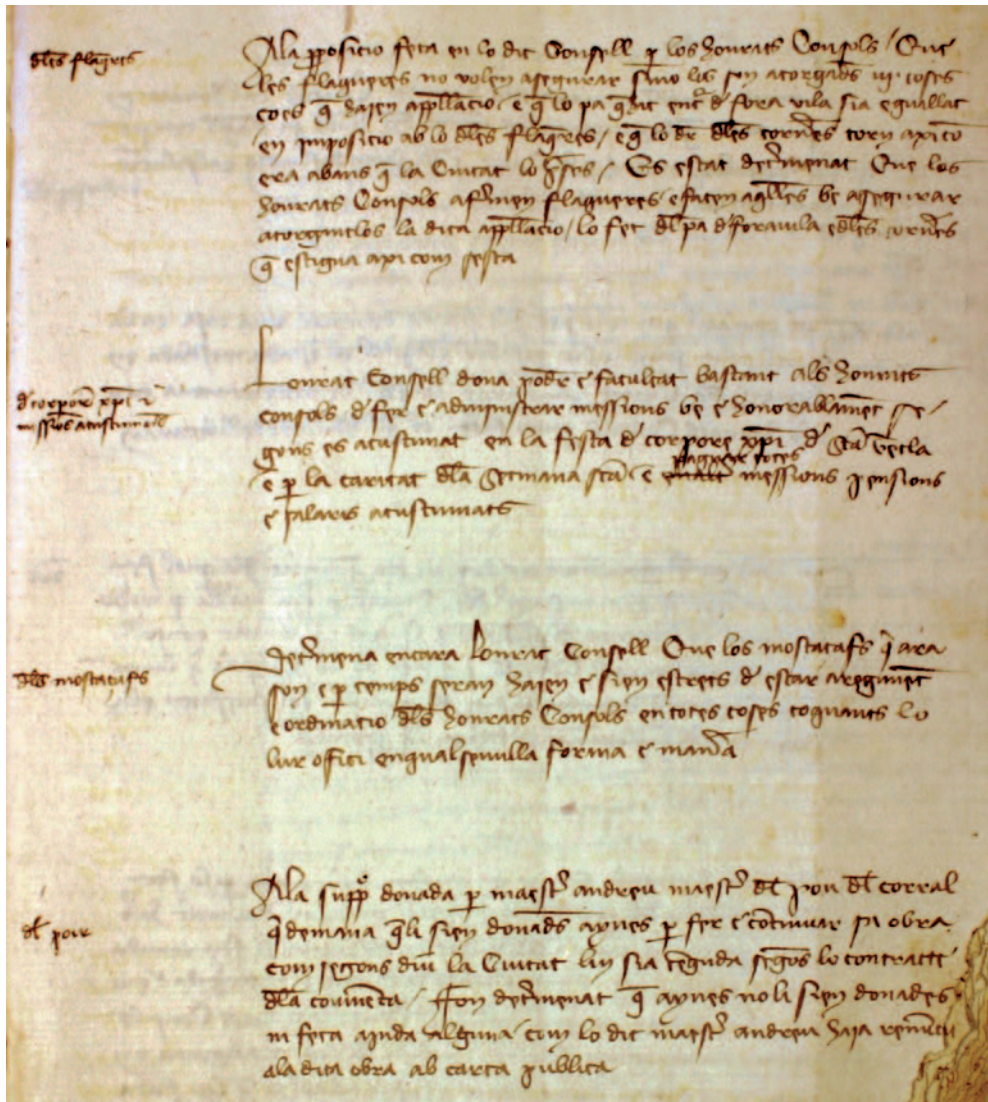 dles flaqres
Ala pposicio feta en lo dit Consell p los honrats Consols / Que
les flaqueres no volen asegurar sino lis son atorgades iii coses
coes q̄ hajen appllacio / e q̄ lo pa q̄ ent d fora vila sia egualat
en imposicio ab lo dles flaqres / e q̄ lo dr dles torns torn axi cō
era abans q̄ la Ciutat lo / Es estat detmenat Que los
honrats Consols afermen flaqueres / e facen aqlles be asegurar
atorgantlos la dita appllacio / lo fet dl pa d foravila e dles
q̄ estigua axi com sesta
d corpore xpi e
messios acustumads
Lonrat Consell dona poder e facultat bastant als honrats
consols d fer e administrar messions be e honorablament se
gons es acustumat en la festa d corpore xpi d Sta tecla
e p la caritat dla Setmana sta e paguar totes messions pensions
e salaris acustumats
dls mostaçafs
Detmena encara lonrat Consell Que los mostaçafs q̄ ara
son e p temps seran hajen e sien estrets d estar a regiment
e ordinacio dls honrats Consols en totes coses toquants lo
lur offici en qualsevulla forma e mana
dl pou
Ala supp donada p maestr andreu maestr dl pou dl corral
q̄ demana q̄li sien donads aynes p fer e cōtinuar sa obra
com segons diu la Ciutat lin sia tenguda segōs lo contracte
dla / Fon detmenat q̄ aynes no li sien donades
ni feta ajuda alguna com lo dit maestr andreu haja
ala dita obra ab carta publica